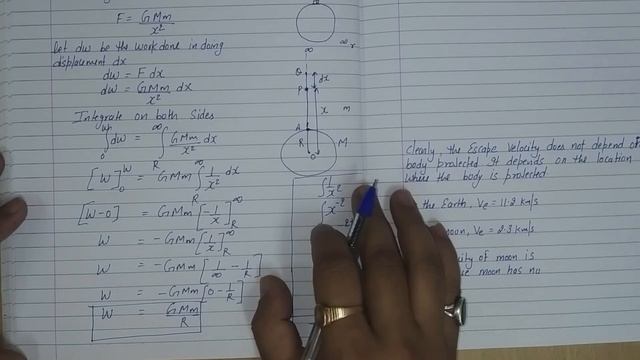 F = GMm/x²
let dw be the work done in doing
displacement dx
dw = F dx
dw = GMm/x² dx
Integrate on both Sides
∫₀ᵂ dw = ∫_R^∞ GMm/x² dx
[W]₀ᵂ = GMm ∫_R^∞ 1/x² dx
[W-0] = GMm [-1/x]_R^∞
W = -GMm [1/x]_R^∞
W = -GMm [1/∞ - 1/R]
W = -GMm [0 - 1/R]
W = GMm/R
∞
∞
Q
dx
P
x
m
A
R
M
O
∫ 1/x²
∫ x⁻²
Clearly, the Escape Velocity does not depend of
body projected It depends on the location
where the body is projected
the Earth, Ve = 11.2 km/s
moon, Ve = 2.3 km/s
of moon is
moon has no